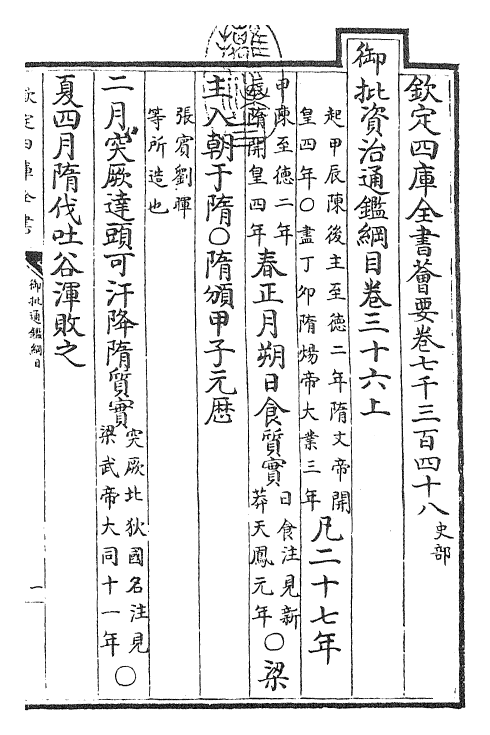 欽定四庫全書薈要卷七千三百四十八 史部
御批資治通鑑綱目卷三十六上
起甲辰陳後主至徳二年隋文帝開
皇四年○盡丁卯隋煬帝大業三年
凡二十七年
甲辰陳至徳二年
隋開皇四年
春正月朔日食質實
日食注見新
莽天鳳元年
○梁
主入朝于隋○隋頒甲子元厯
張賓劉暉
等所造也
二月突厥達頭可汗降隋質實
突厥北狄國名注見
梁武帝大同十一年
○
夏四月隋伐吐谷渾敗之
欽定四庫全書
御批通鑑綱目
一